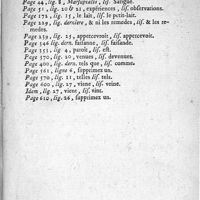 Page 44, lig. 8, Marsupiales, lis. Sangue.
Page 51, lig. 20 & 21, expériences, lis. observations.
Page 172, lig. 15, le lait, lis. le petit-lait.
Page 229, lig. derniere, & ni les remedes, lis. & les re-
medes.
Page 259, lig. 25, appercevoit, lis. appercevoit.
Page 346 lig. dern. faisanne, lis. faisande.
Page 351, lig. 4, paroît, lis. est.
Page 370, lig. 20, venues, lis. devenues.
Page 400, lig. dern. tels que, lis. comme.
Page 561, ligne 6, supprimez un.
Page 570, lig. 21, telles lis. tels.
Page 600, lig. 27, viene, lis. veine.
Idem, lig. 27, viene, lis. vint.
Page 610, lig. 26, supprimez un.